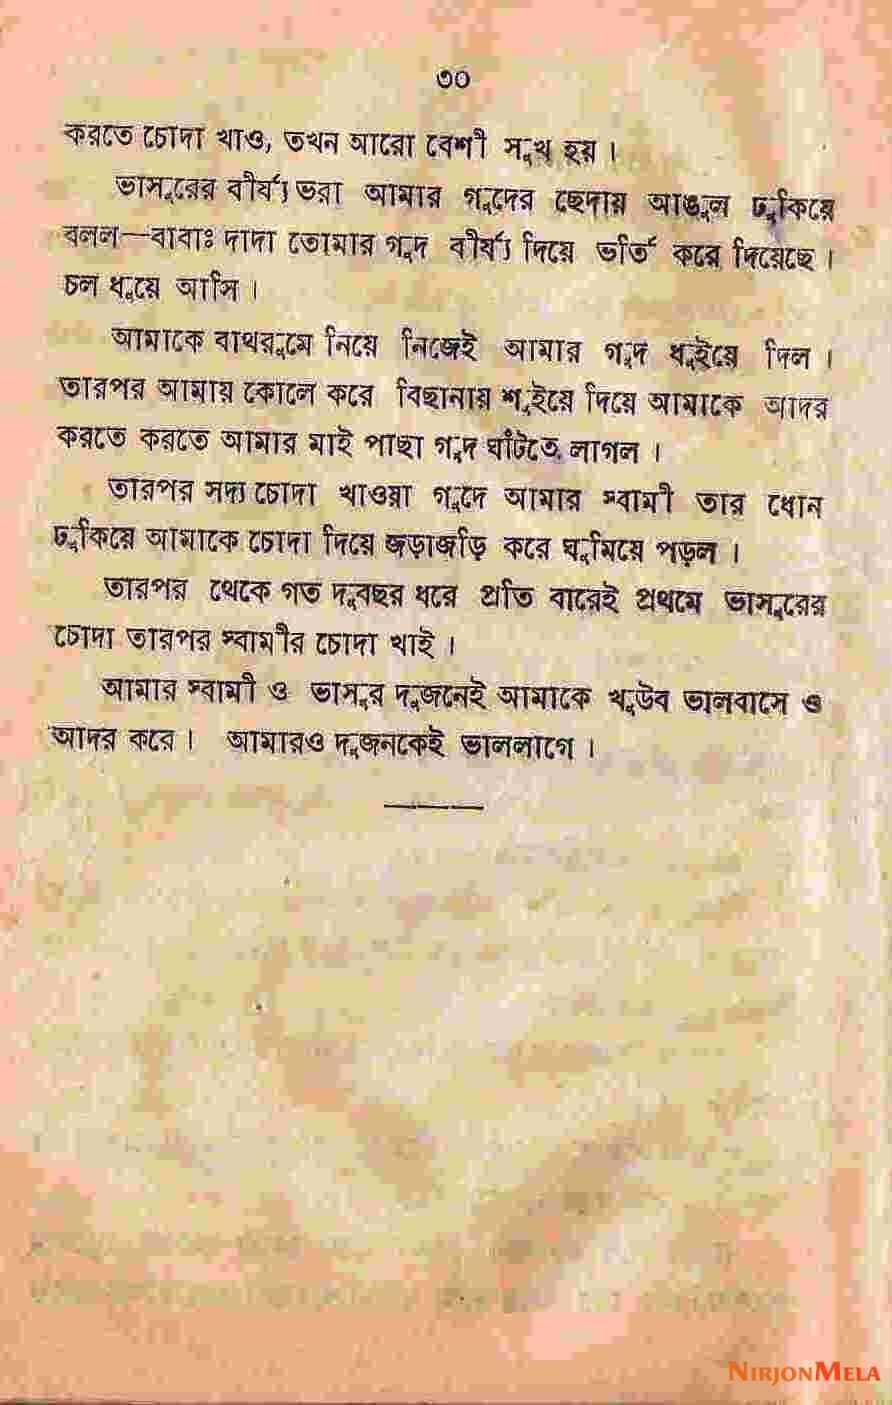 ৩০
করতে চোদা খাও, তখন আরো বেশী সুখ হয়।
ভাসুরের বীর্য্য ভরা আমার গুদের ছেদায় আঙুল ঢুকিয়ে
বলল—বাবাঃ দাদা তোমার গুদ বীর্য্য দিয়ে ভর্তি করে দিয়েছে।
চল ধুয়ে আসি।
আমাকে বাথরুমে নিয়ে নিজেই আমার গুদ ধুইয়ে দিল।
তারপর আমায় কোলে করে বিছানায় শুইয়ে দিয়ে আমাকে আদর
করতে করতে আমার মাই পাছা গুদ ঘাঁটতে লাগল।
তারপর সদ্য চোদা খাওয়া গুদে আমার স্বামী তার ধোন
ঢুকিয়ে আমাকে চোদা দিয়ে জড়াজড়ি করে ঘুমিয়ে পড়ল।
তারপর থেকে গত দুবছর ধরে প্রতি বারেই প্রথমে ভাসুরের
চোদা তারপর স্বামীর চোদা খাই।
আমার স্বামী ও ভাসুর দুজনেই আমাকে খুউব ভালবাসে ও
আদর করে। আমারও দুজনকেই ভাললাগে।
NIRJONMELA